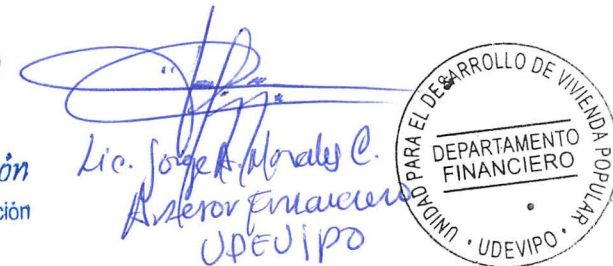 ón
ción
Lic. Jorge A. Morales C.
Asesor Financiero
UDEVIPO
UNIDAD PARA EL DESARROLLO DE VIVIENDA POPULAR
DEPARTAMENTO
FINANCIERO
· UDEVIPO ·